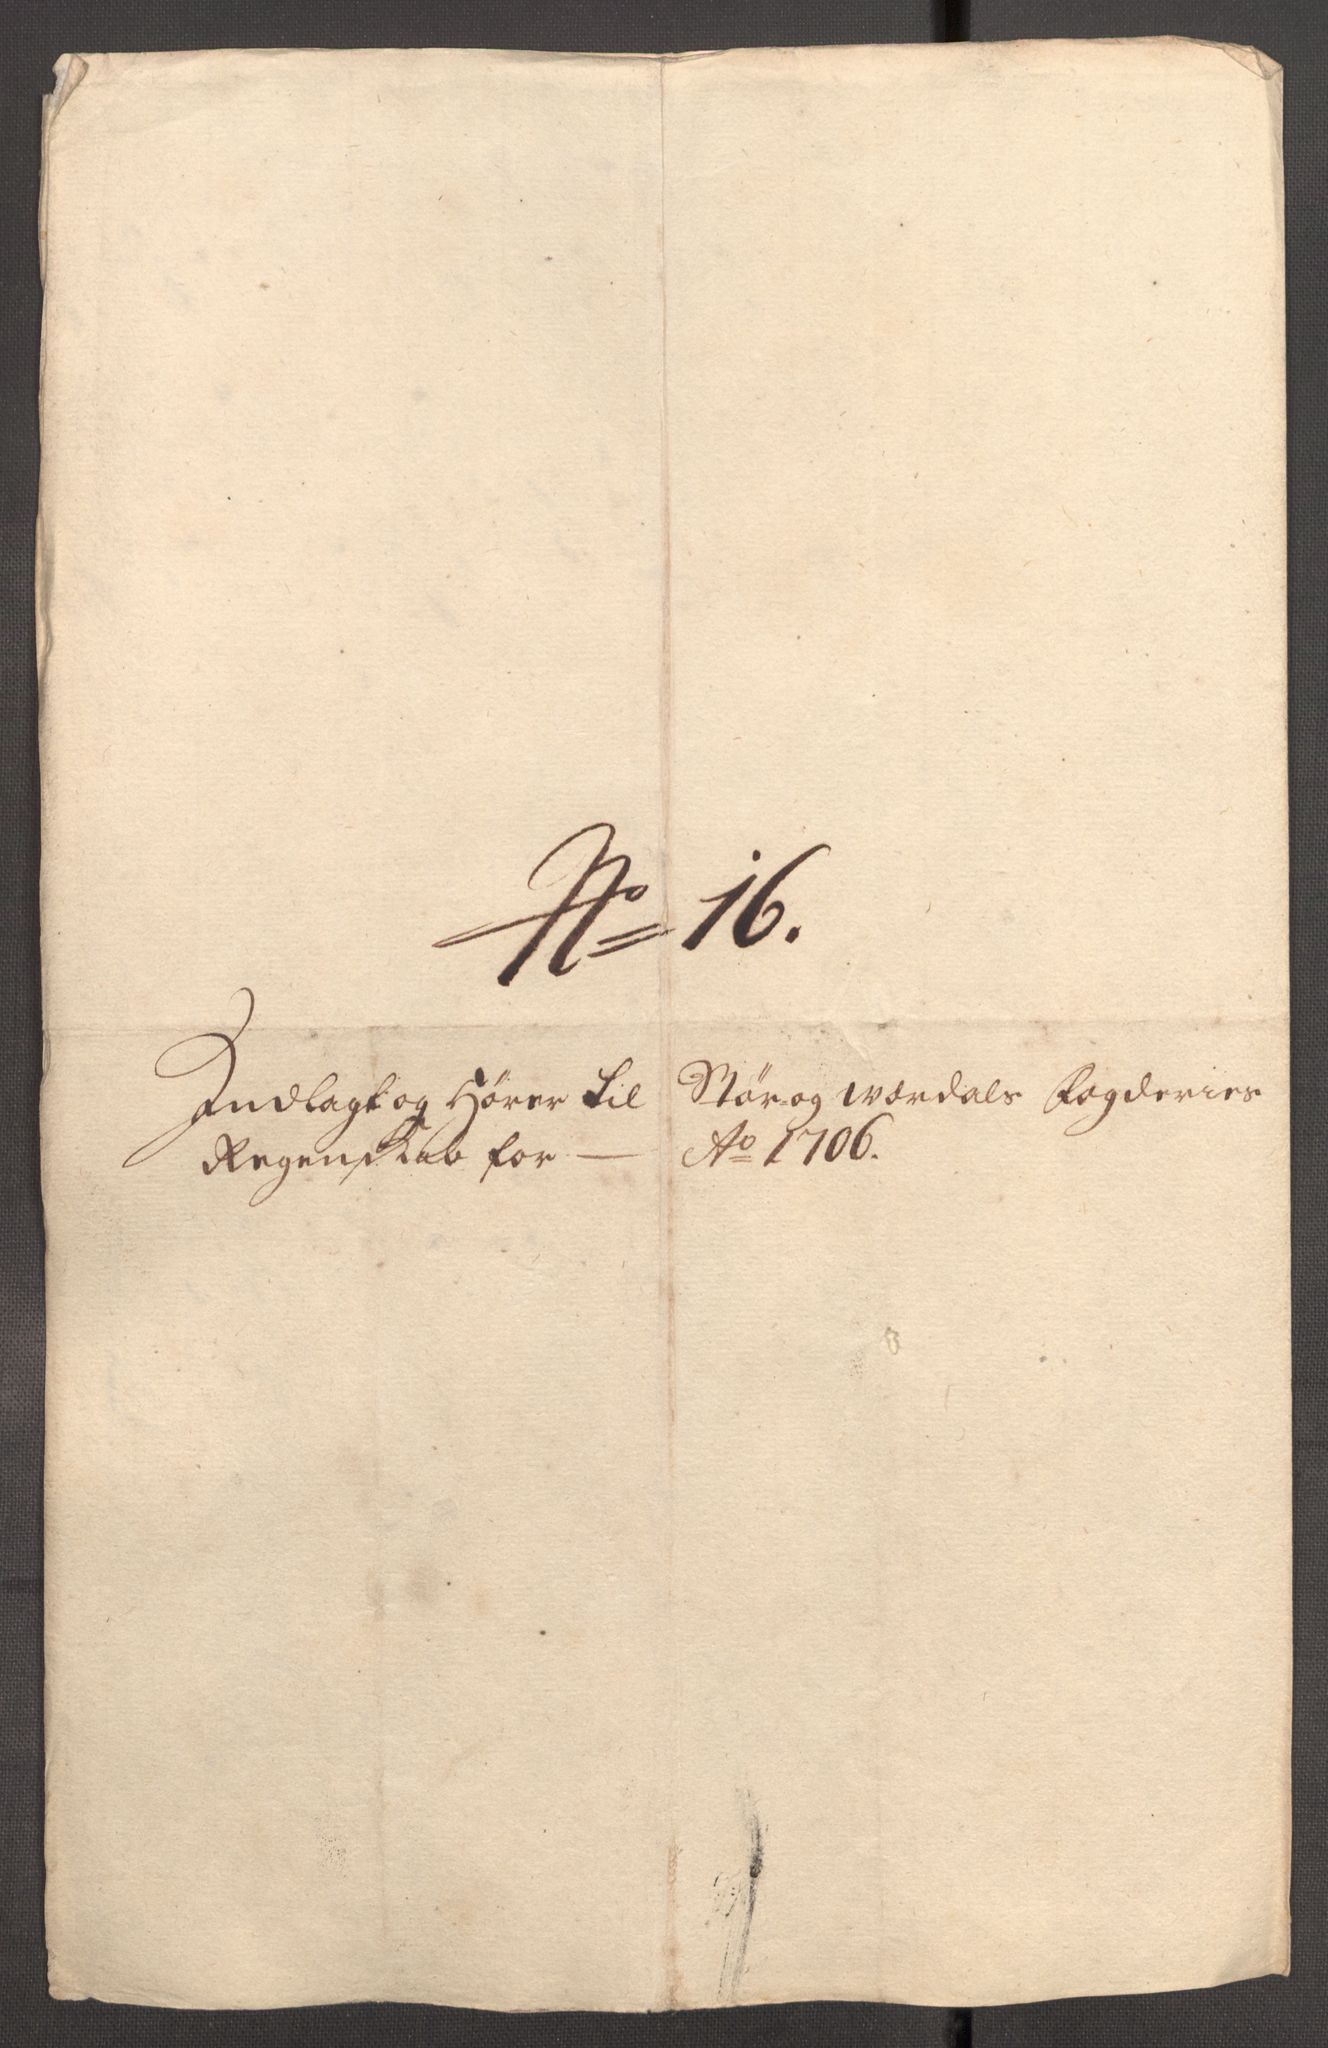 No 16.
Indlagt og Hører til Stør og Wærdals Fogderies
Regenskab for — Ao 1706.